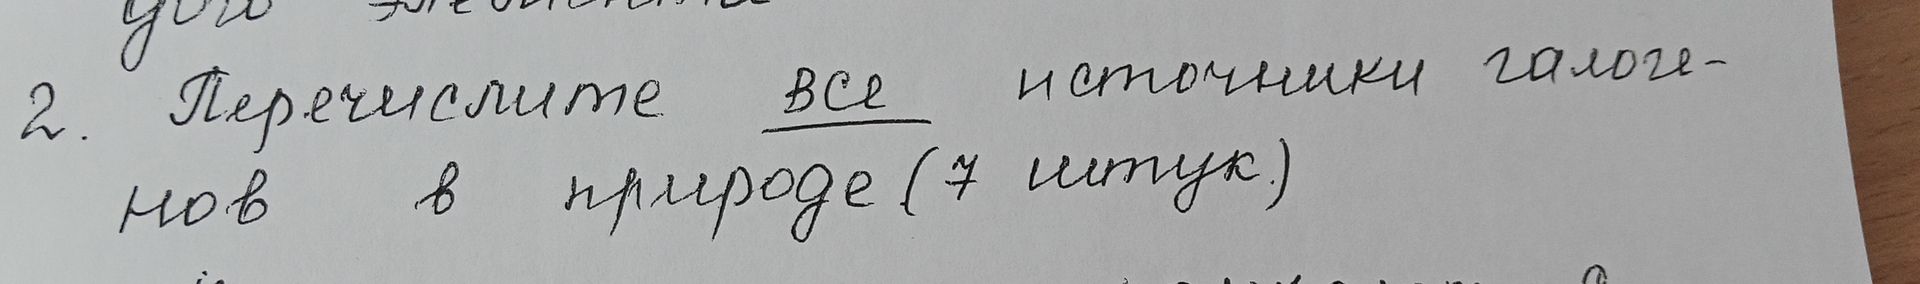 2. Перечислите все источники галоге-
нов в природе (7 штук)